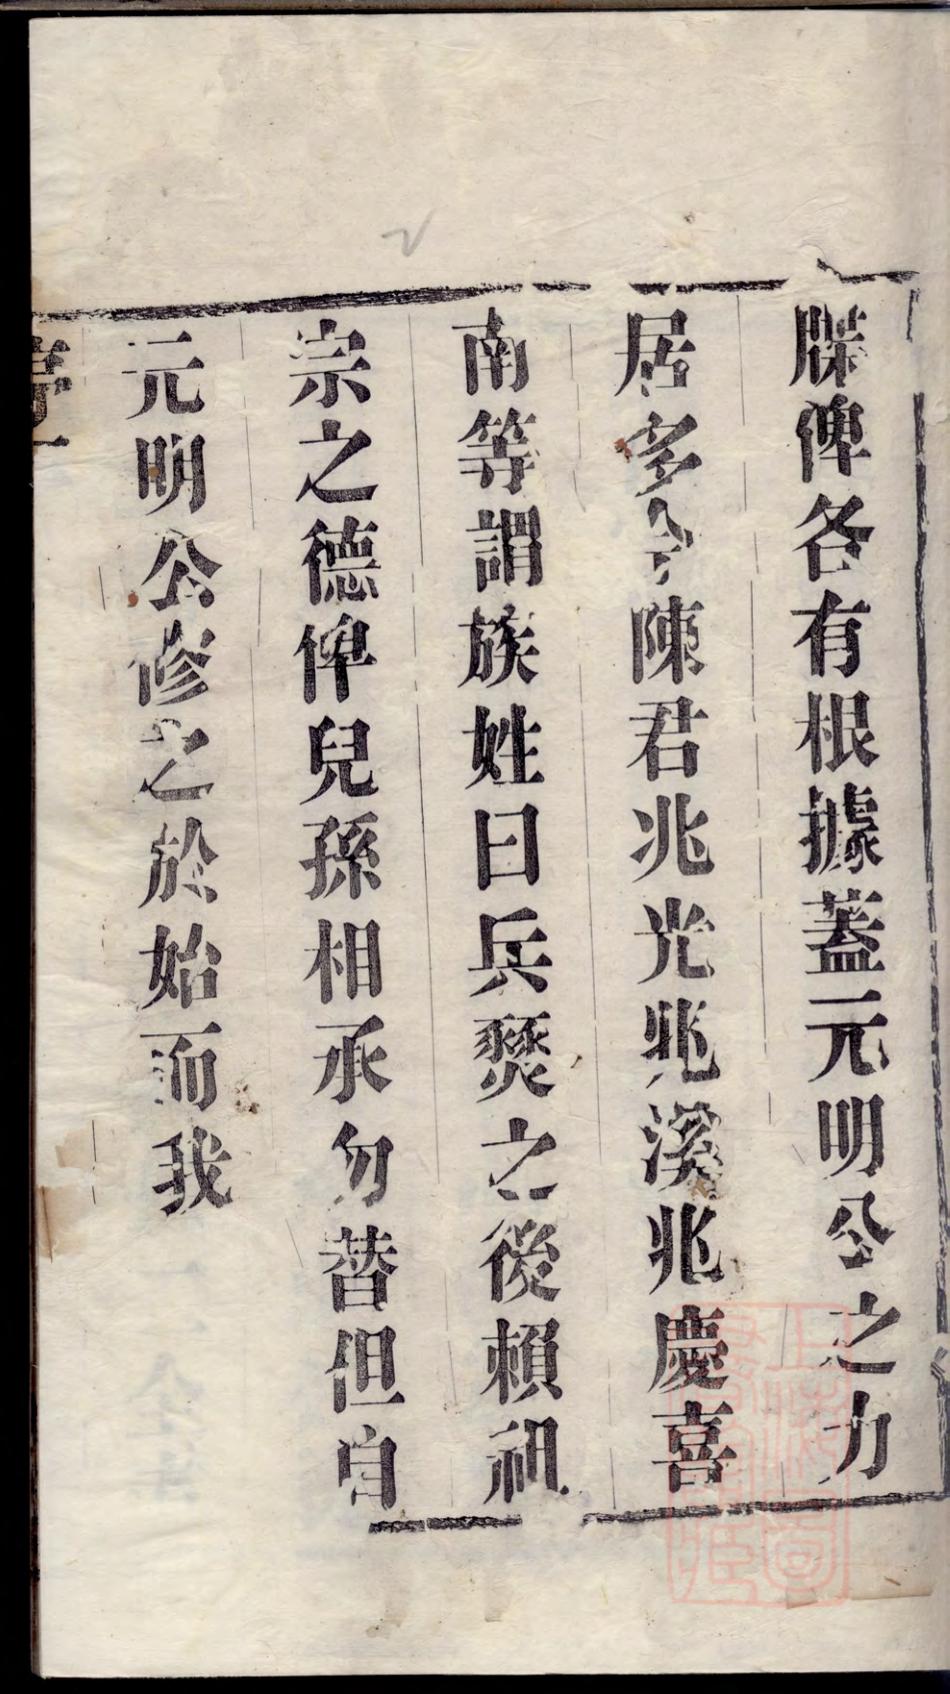 牒俾各有根據蓋元明公之力
居多今陳君兆光兆兆溪兆慶喜
南等謂族姓曰兵燹之後賴祖
宗之德俾兒孫相承勿替但自
元明公修之於始而我
序一